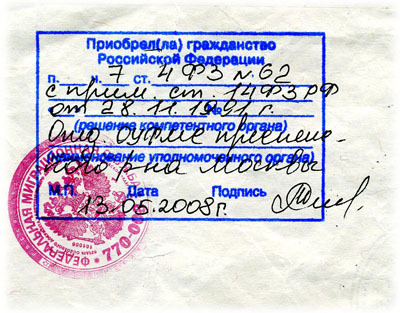 Приобрел(ла) гражданство
Российской Федерации
п. ч. 7 ст. 4 ФЗ N 62
с прим. ст. 14 ФЗ РФ
от 28.11.1991 г. №
(решение компетентного органа)
Отд. ОУФМС Преснен-
(наименование уполномоченного органа)
ского р-на Москвы
М.П. Дата Подпись
13.05.2008 г.
ФЕДЕРАЛЬНАЯ МИГРАЦИОННАЯ
770-00